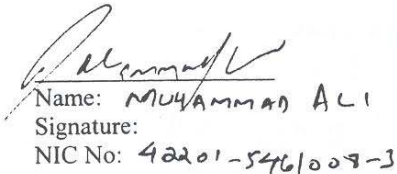 Name: MUHAMMAD ALI
Signature:
NIC No: 42201-5461008-3